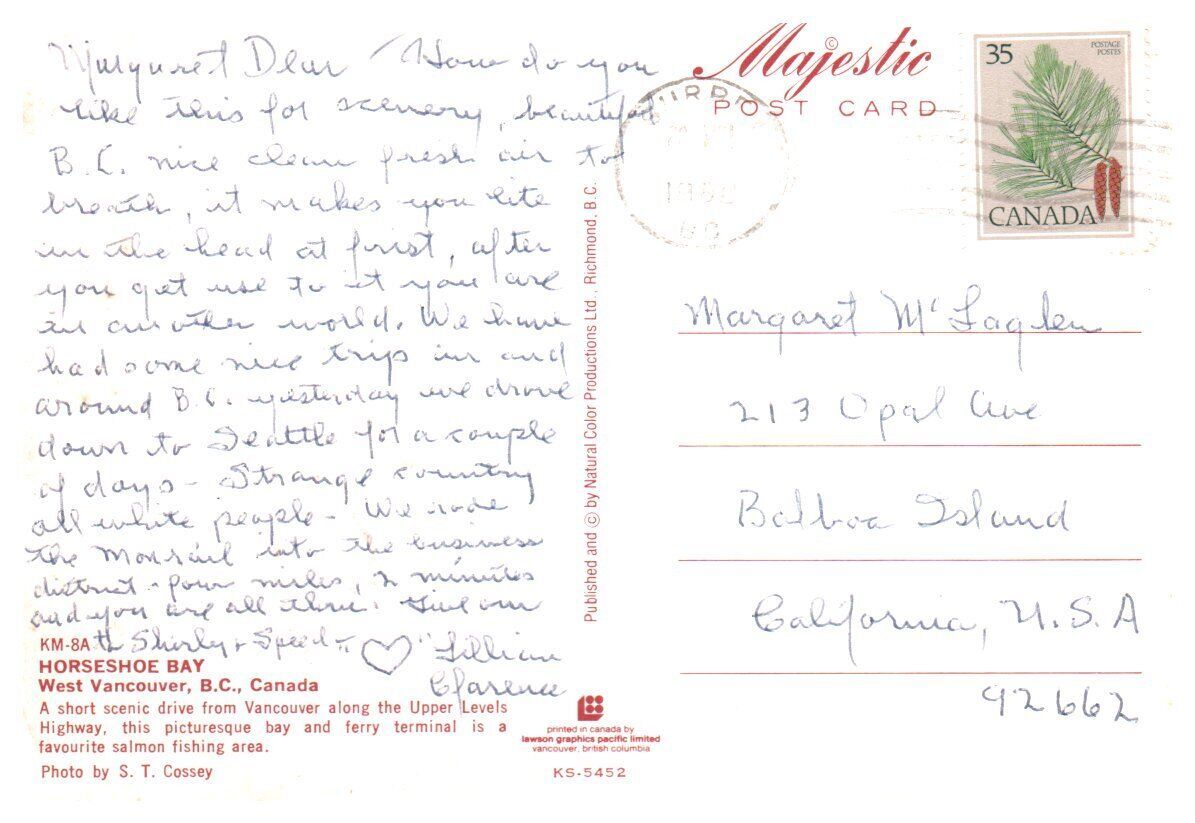 Margaret Dear / How do you
like this for scenery, beautiful
B.C. nice clean fresh air to
breath, it makes you lite
in the head at frist, after
you get use to it you are
in another world. We have
had some nice trips in and
around B.C. yesterday we drove
down to Seattle for a couple
of days - Strange country
all white people - We rode
the Monrail into the business
district - four miles, 2 minutes
and you are all there. Give our
to Shirly + Speed - ♡ "Lillian
Clarence
KM-8A
HORSESHOE BAY
West Vancouver, B.C., Canada
A short scenic drive from Vancouver along the Upper Levels
Highway, this picturesque bay and ferry terminal is a
favourite salmon fishing area.
Photo by S. T. Cossey
Published and © by Natural Color Productions Ltd., Richmond, B.C.
printed in canada by
lawson graphics pacific limited
vancouver, british columbia
KS-5452
Majestic ©
POST CARD
35
POSTAGE
POSTES
CANADA
Margaret McLaglen
213 Opal Ave
Balboa Island
California, U.S.A
92662